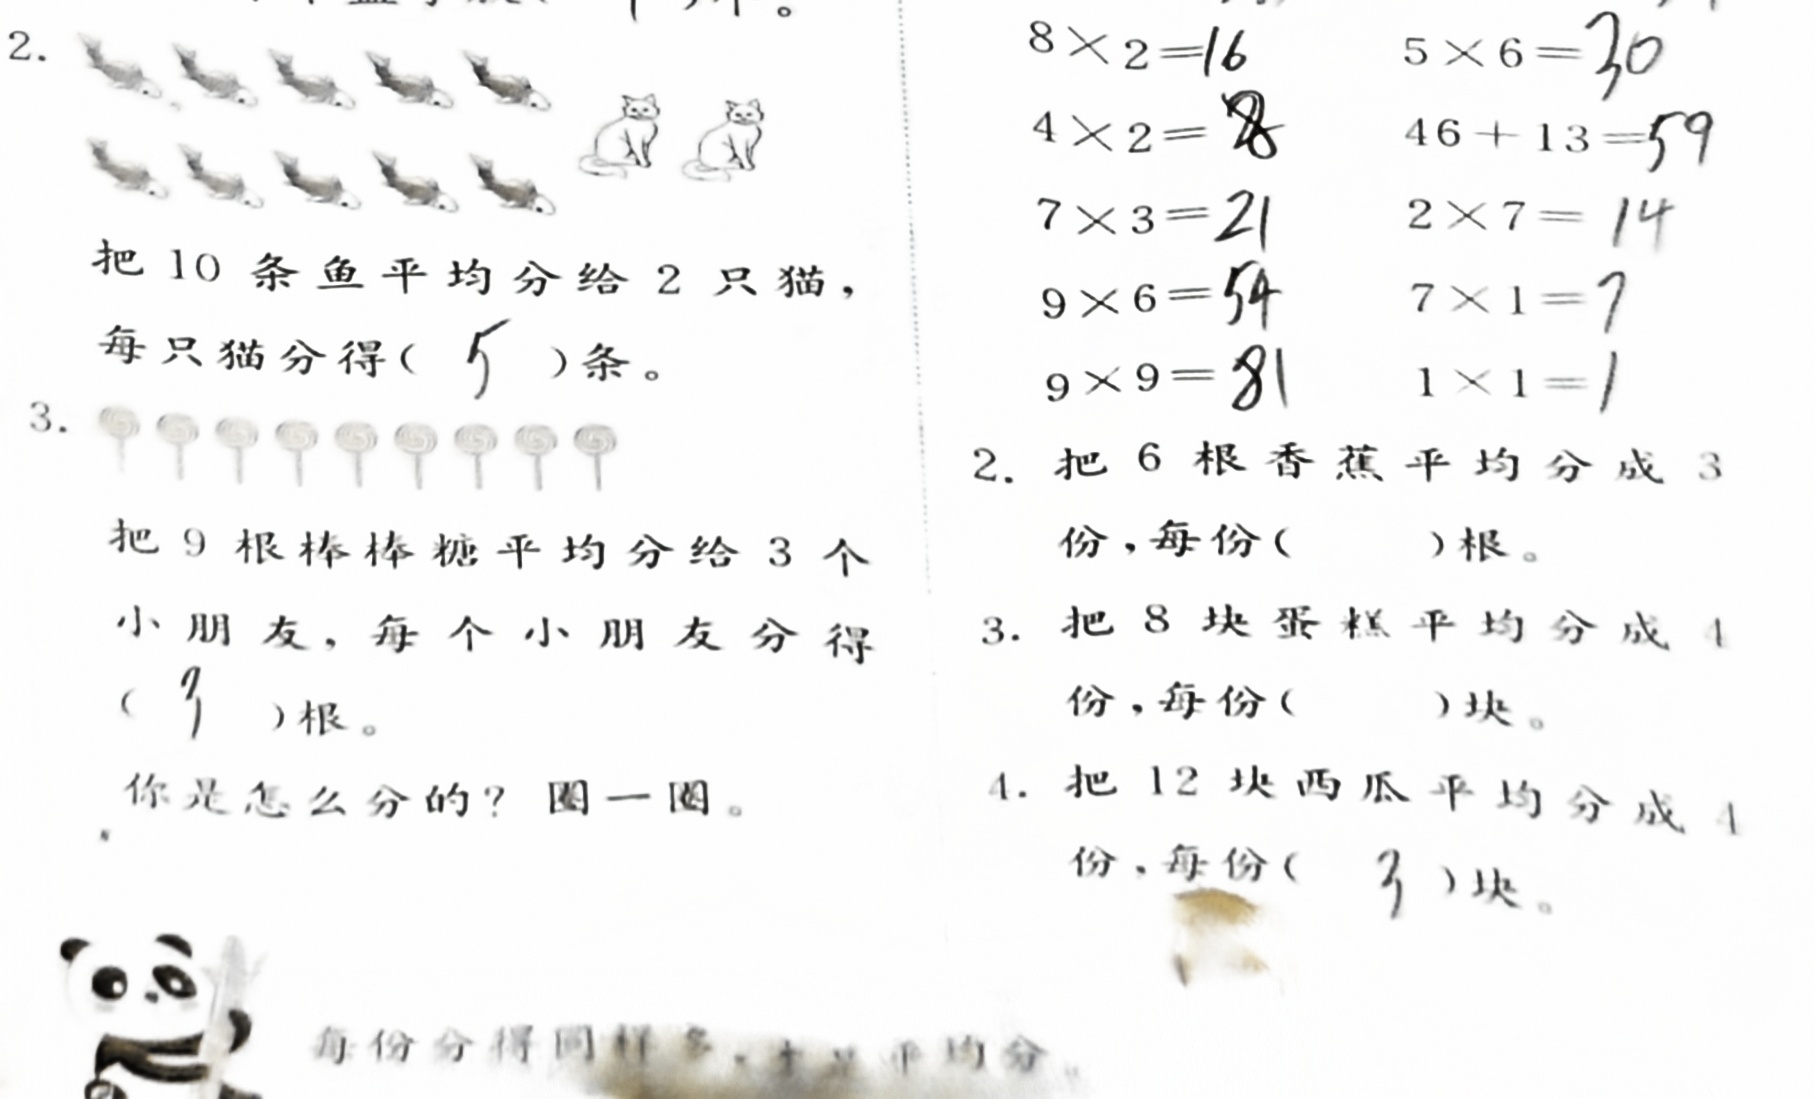 2.
把 10 条鱼平均分给 2 只猫，
每只猫分得( 5 )条。
3.
把 9 根棒棒糖平均分给 3 个
小朋友，每个小朋友分得
( 3 )根。
你是怎么分的？圈一圈。
每份分得同样多，才是平均分。
8×2=16 5×6=30
4×2=8 46+13=59
7×3=21 2×7=14
9×6=54 7×1=7
9×9=81 1×1=1
2. 把 6 根香蕉平均分成 3
份，每份( )根。
3. 把 8 块蛋糕平均分成 4
份，每份( )块。
4. 把 12 块西瓜平均分成 4
份，每份( 3 )块。